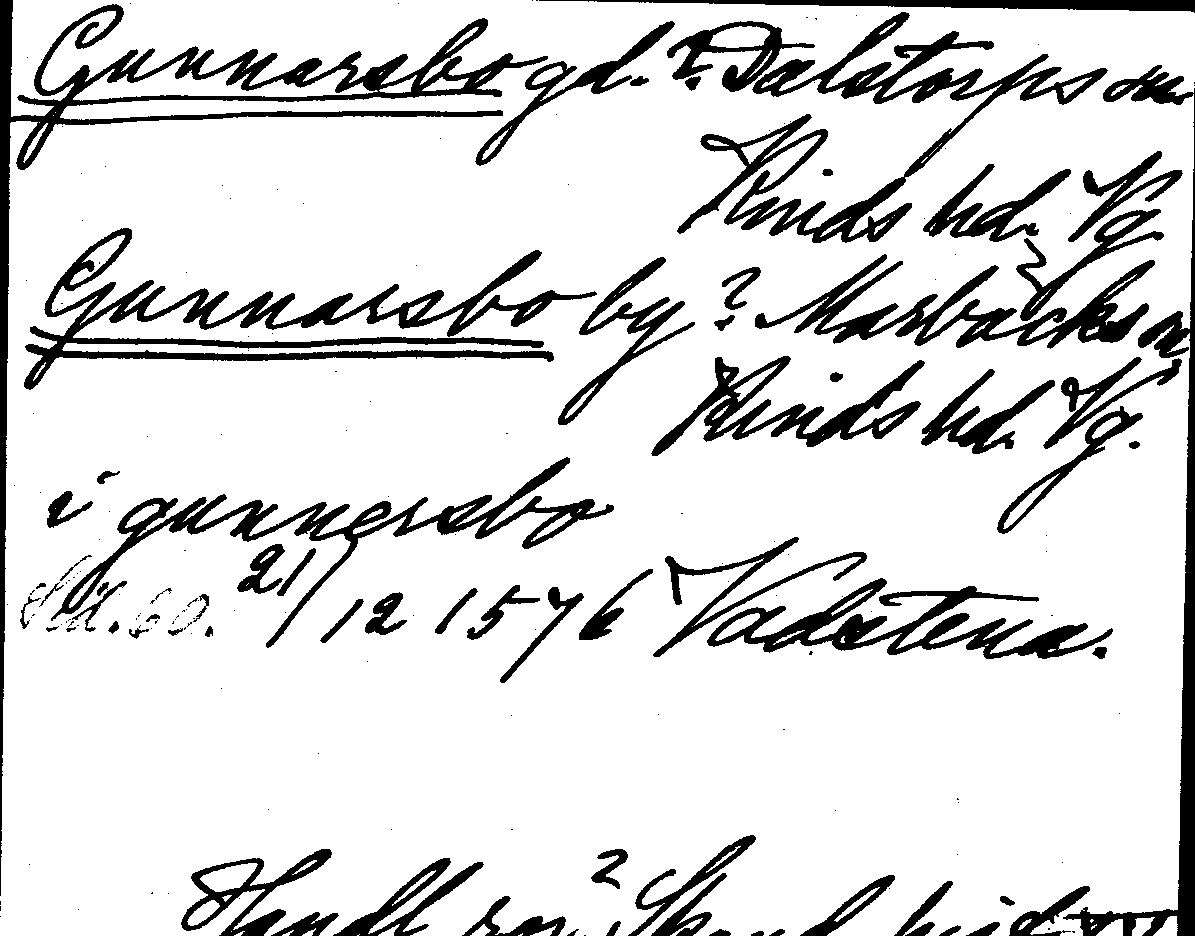 Gunnarsbo gd. ? Dalstorps sn.
Kinds hd. Vg.
Gunnarsbo by ? Marbäcks sn,
Kinds hd. Vg.
i gunnersbo
Sid. 60. 21/12 1576 Vadstena.
Handl. rör. Skand. hist.